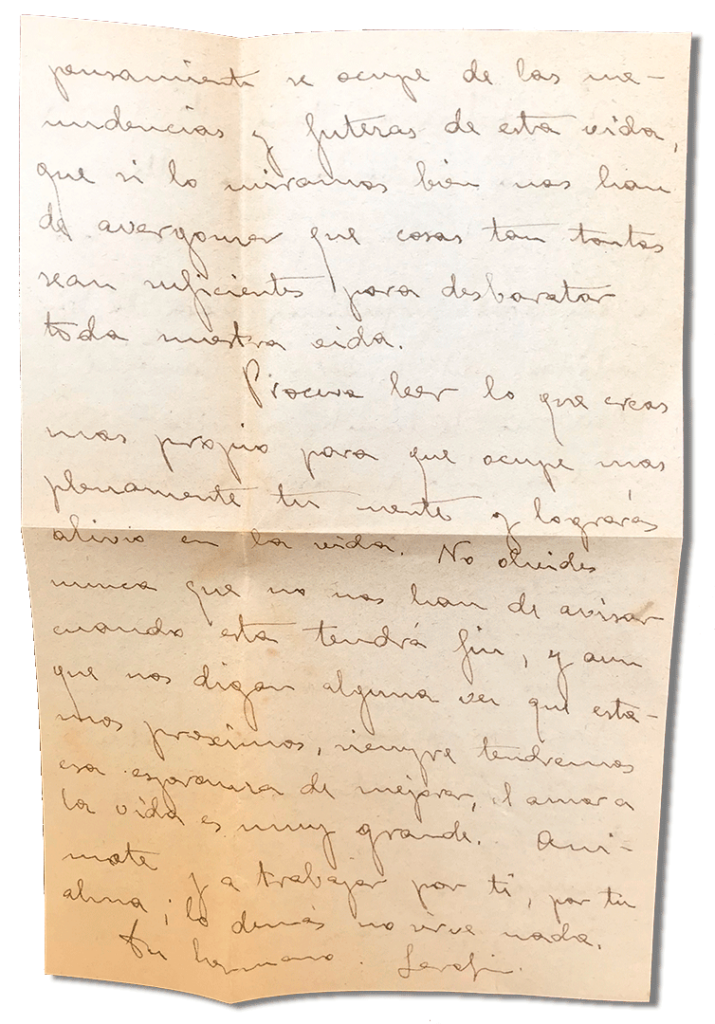 pensamiento se ocupe de las me-
nudencias y futeras de esta vida,
que si lo miramos bien nos han
de avergonzar que cosas tan tontas
sean suficientes para desbaratar
toda nuestra vida.
Procura leer lo que creas
mas propio para que ocupe mas
plenamente tu mente y lograrás
alivio en la vida. No olvides
nunca que no nos han de avisar
cuando esta tendrá fin, y aun
que nos digan alguna vez que esta-
mos proximos, siempre tendremos
esa esperanza de mejorar, el amor a
la vida es muy grande. Ani-
mate y a trabajar por ti, por tu
alma; lo demás no sirve nada.
Tu hermano. Serafin.